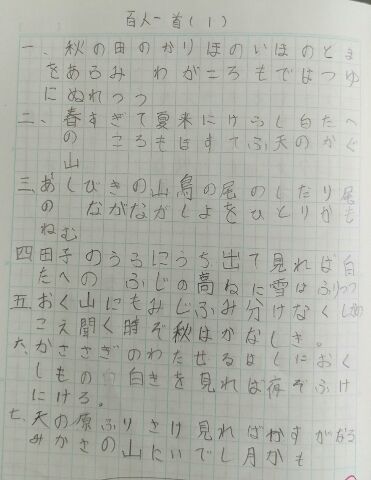 百人一首(1)
一、秋の田のかりほのいほのとま
をあらみ わがころもではつゆ
にぬれつつ
二、春すぎて夏来にけらし白たへ
の ころもほすてふ天のかぐ
山
三、あしびきの山鳥の尾のしたり尾
の ながながしよをひとりかも
ねむ
四、田子のうらにうち出て見れば白
たへの ふじの高ねに雪はふりつつ
五、おく山にもみじふみ分けなくしかの
こえ聞く時ぞ秋はかなしき。
六、かささぎのわたせるはしにおく
しもの 白きを見れば夜ぞふけ
にける。
七、天の原ふりさけ見ればかすがなる
みかさの山にいでし月かも